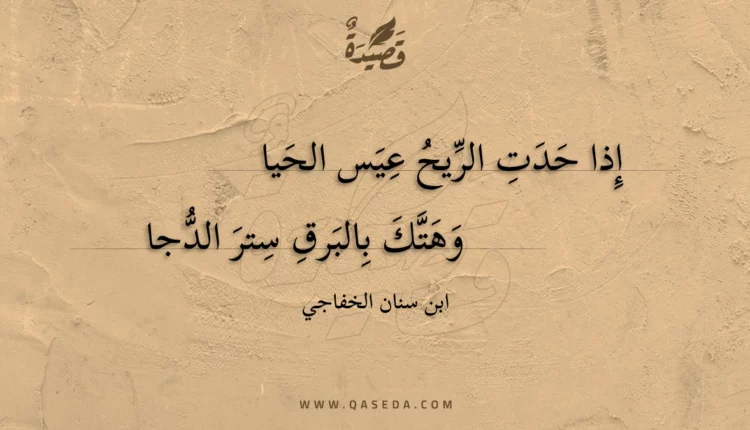 قَصِيدَةٌ
إِذا حَدَتِ الرِّيحُ عِيَس الحَيا
وَهَتَّكَ بِالبَرقِ سِترَ الدُّجا
ابن سنان الخفاجي
WWW.QASEDA.COM